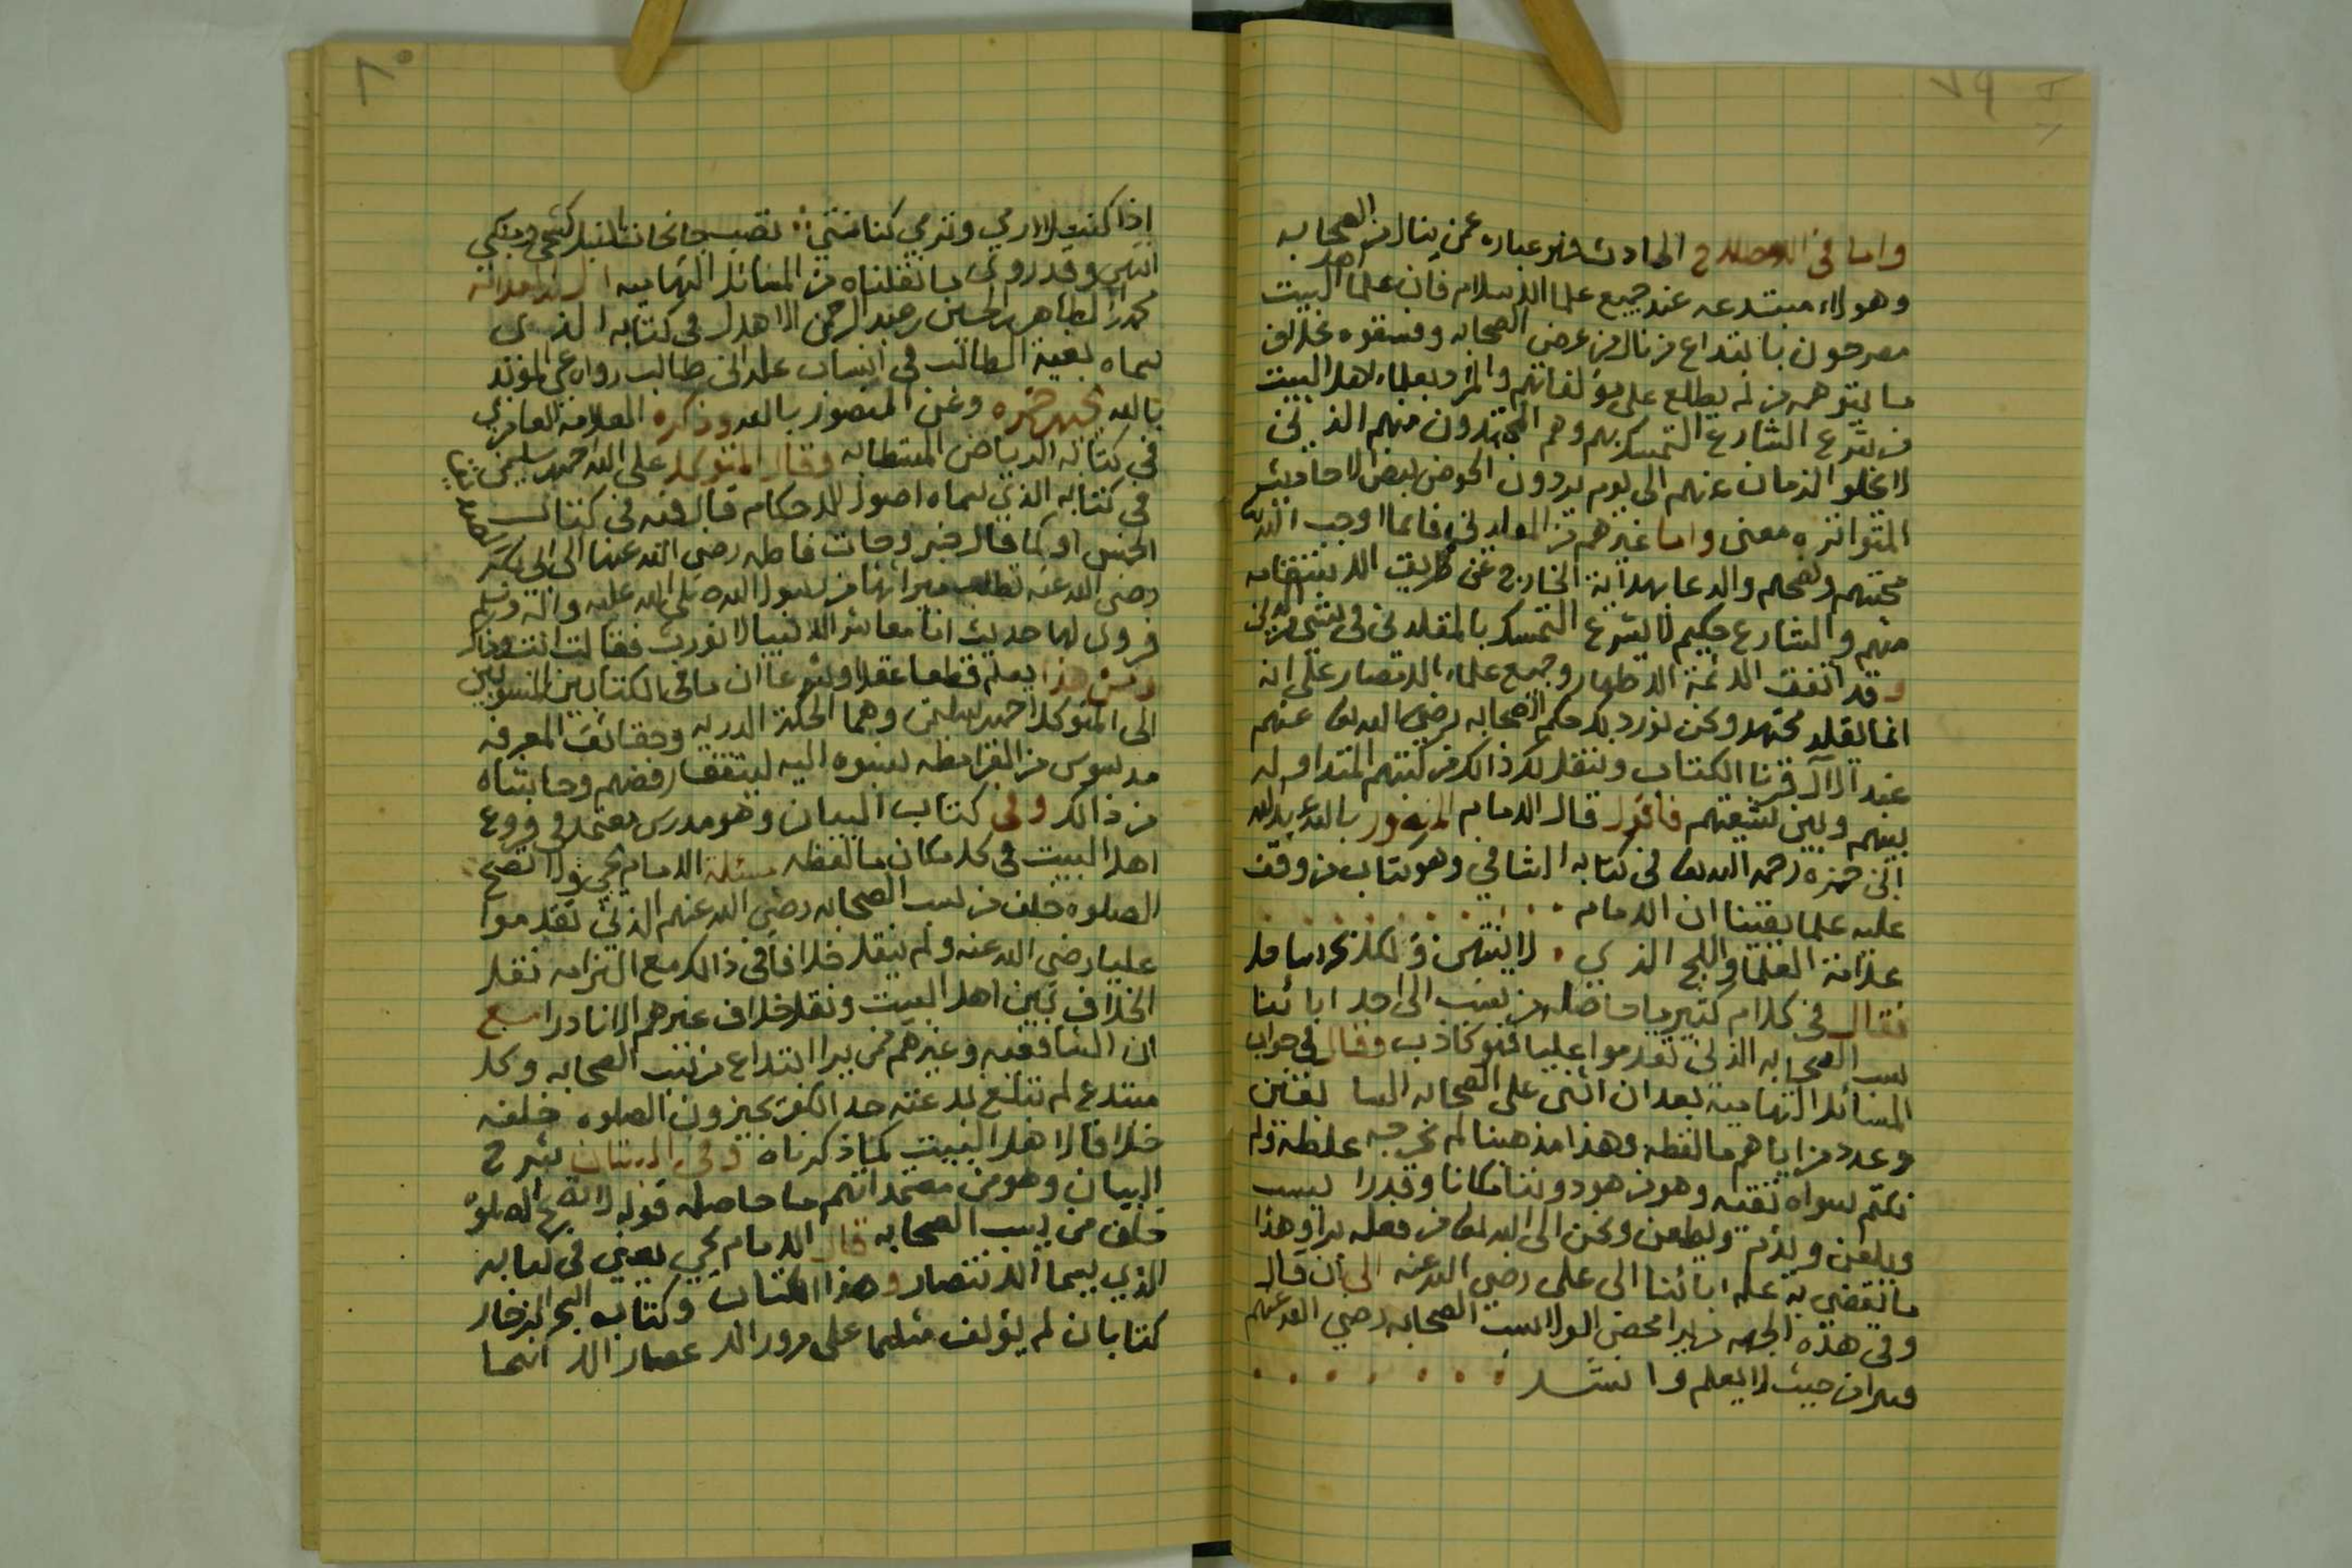 ٧٩
واما في الاصطلاح الحادث فهو عباره عمن ينال من الصحابه
وهولاء مبتدعه عند جميع علما الاسلام فان علما اهل البيت
مصرحون بابتداع من نال من عرض الصحابه وفسقوه بخلاف
ما يتوهمه من لم يطلع على مؤلفاتهم والمراد بعلماء اهل البيت
من شرع الشارع التمسك بهم وهم المجتهدون منهم الذين
لا يخلو الزمان عنهم الى يوم يردون الحوض لبعض الاحاديث
المتواتره معنى واما غيرهم من المقلدين فانما اوجب الله
محبتهم ونصحهم والدعا بهداية الخارج عن طريق الاستقامه
منهم والشارع حكيم لا يشرع التمسك بالمقلدين في شي من الدين
وقد اتفقت الائمة الاطهار وجميع علماء الامصار على انه
انما يقلد مجتهد ونحن نورد لك حكم الصحابه رضي الله عنهم
عند الآل قرنا الكتاب وننقل لك ذالك من كتبهم المتداوله
بينهم وبين شيعتهم فاقول قال الامام المنصور بالله عبدالله
ابن حمزه رحمه الله في كتابه الشافي وهو كتاب من وقف
عليه علم يقينا ان الامام
علامة العلما واللج الذي لا ينتهي ولكل بحر ساحل
فقال في كلام كثير ما حاصله من نسب الى احد ابائنا
سب الصحابه الذين تقدموا عليا فهو كاذب وقال في جواب
المسائل التهاميه بعد ان اثنى على الصحابه السابقين
وعدد مزاياهم ما لفظه وهذا مذهبنا لم نخرجه غلطة ولم
نكتم سواه تقيه وهو من هو دوننا مكانا وقدرا يسب
ويلعن ويذم ويطعن ونحن الى الله من فعله براء وهذا
ما يقضي به علم ابائنا الى علي رضي الله عنه الى ان قال
وفي هذه الجهه من يرا محض الولا سب الصحابه رضي الله عنهم
من حيث لا يعلم وانشد
٨٠
اذا كنت لا ارمي وترمي كنانتي تصب جانحات النبل كشحي ومنكبي
انتهى وقد روى ما نقلناه من المسائل التهاميه
محمد الطاهر بن الحسين بن عبد الرحمن الاهدل في كتابه الذي
سماه بغية الطالب في انساب علي بن ابي طالب رواه عن المؤيد
بالله يحيى بن حمزه وعن المنصور بالله وذكره العلامة العامري
في كتابه الرياض المستطابه وقال المتوكل على الله احمد بن سليمن
في كتابه الذي سماه اصول الاحكام قال فيه في كتاب
الخمس او كما قال خبر وجات فاطمه رضي الله عنها الى ابي بكر
رضي الله عنه تطلب ميراثها من رسول الله صلى الله عليه وآله وسلم
فروى لها حديث انا معاشر الانبيا لا نورث فقالت انت وذاك
ومن هذا يعلم قطعا عقلا وشرعا ان ما في الكتابين المنسوبين
الى المتوكل احمد بن سليمن وهما الحكمة الدريه وحقائق المعرفه
مدسوس من القرامطه نسبوه اليه لينفق رفضهم وحاشاه
من ذالك وفي كتاب البيان وهو مدرس معتمد في فروع
اهل البيت في كل مكان ما لفظه مسئلة الامام يحيى ولا تصح
الصلوه خلف من يسب الصحابه رضي الله عنهم الذين تقدموا
عليا رضي الله عنه ولم ينقل خلافا في ذالك مع التزامه نقل
الخلاف بين اهل البيت ونقل خلاف غيرهم الا نادرا مع
ان الشافعيه وغيرهم ممن يرا ابتداع من يسب الصحابه وكل
مبتدع لم تبلغ بدعته حد الكفر يجيزون الصلوه خلفه
خلافا لاهل البيت كما ذكرناه وفي البستان شرح
البيان وهو من معتمداتهم ما حاصله قوله لا تصح الصلوة
خلف من يسب الصحابه قال الامام يحيى يعني في كتابه
الذي يسما الانتصار وهذا الكتاب وكتاب البحر الزخار
كتابان لم يؤلف مثلهما على مرور الاعصار انتها